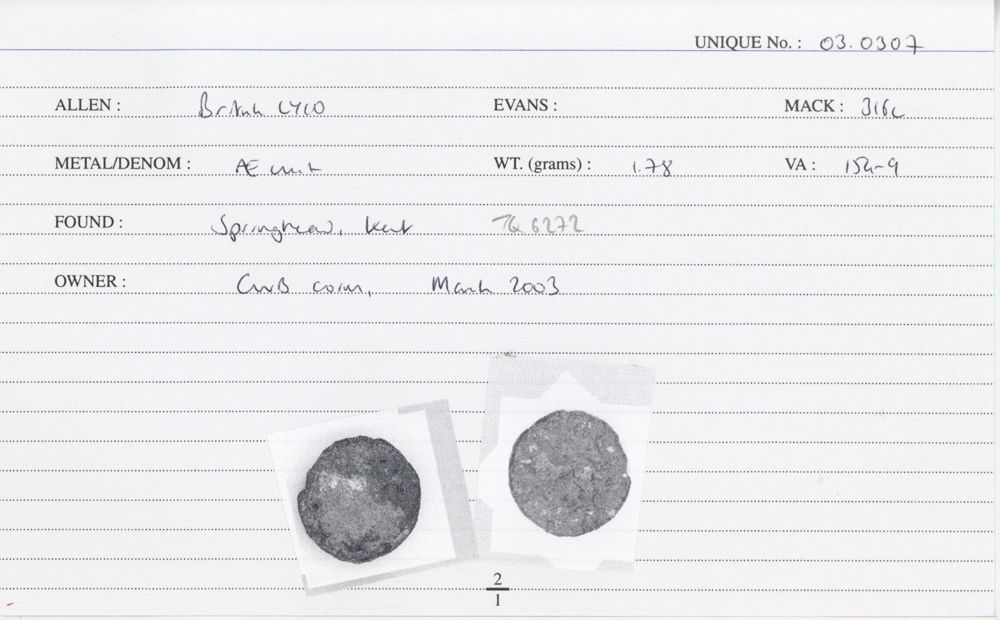 UNIQUE No. : 03.0307
ALLEN : British LY10 EVANS : MACK : 316c
METAL/DENOM : Æ unit WT. (grams) : 1.78 VA : 154-9
FOUND : Springhead, Kent TQ 6272
OWNER : CWB coin, March 2003
2
1